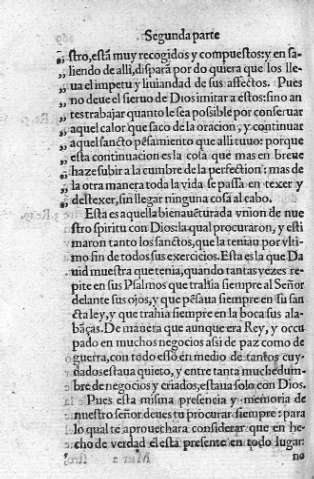 Segunda parte
„ stro, està muy recogidos y compuestos: y en sa-
„ liendo de alli, dispara por do quiera que los lle-
„ ua el impetu y liuiandad de sus affectos. Pues
„ no deue el sieruo de Dios imitar a estos: sino an
„ tes trabajar quanto le sea possible por conseruar
„ aquel calor que saco de la oracion, y continuar
„ aquel sancto pèsamiento que alli tuuo: porque
„ esta continuacion es la cosa que mas en breue
„ haze subir a la cumbre de la perfection: mas de
„ la otra manera toda la vida se passa en texer y
„ destexer, sin llegar ninguna cosa al cabo.
Esta es aquella bienauēturada vnion de nue
stro spiritu con Dios: la qual procuraron, y esti
maron tanto los sanctos, que la teniau por vlti
mo fin de todos sus exercicios. Esta es la que Da
uid muestra que tenia, quando tantas vezes re-
pite en sus Psalmos que trahia siempre al Señor
delante sus ojos, y que pēsaua siempre en su san
cta ley, y que trahia siempre en la boca sus ala-
bāças. De manera que aunque era Rey, y occu
pado en muchos negocios assi de paz como de
guerra, con todo esso en medio de tantos cuy-
dados estaua quieto, y entre tanta muchedum-
bre de negocios y criados, estaua solo con Dios.
Pues esta misma presencia y memoria de
nuestro señor deues tu procurar siempre: para
lo qual te aprouechara considerar que en he-
cho de verdad el esta presente en todo lugar:
no